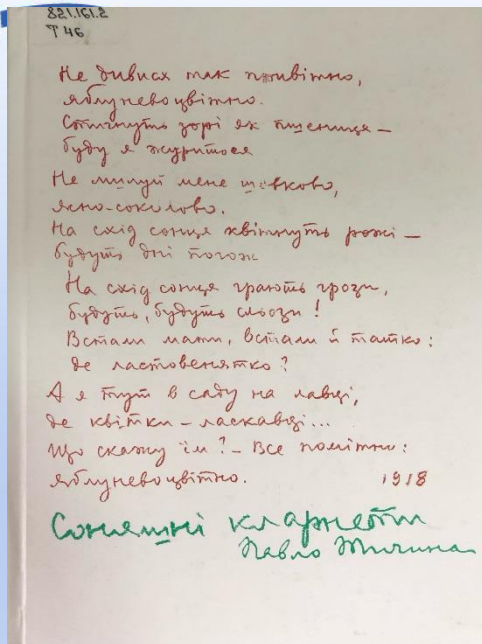 821.161.2
Т 46
Не дивися так привітно,
яблуневоцвітно.
Стигнуть зорі як пшениця –
буду я журитися
Не милуй мене шовково,
ясно-соколово.
На схід сонця квітнуть рожі –
будуть дні погожі
На схід сонця грають грози,
будуть, будуть сльози!
Встали мати, встали й татко:
де ластовенятко?
А я тут в саду на лавці,
де квітки-ласкавці...
Що скажу їм? – Все помітно:
яблуневоцвітно.
1918
Сонячні кларнети
Павло Тичина